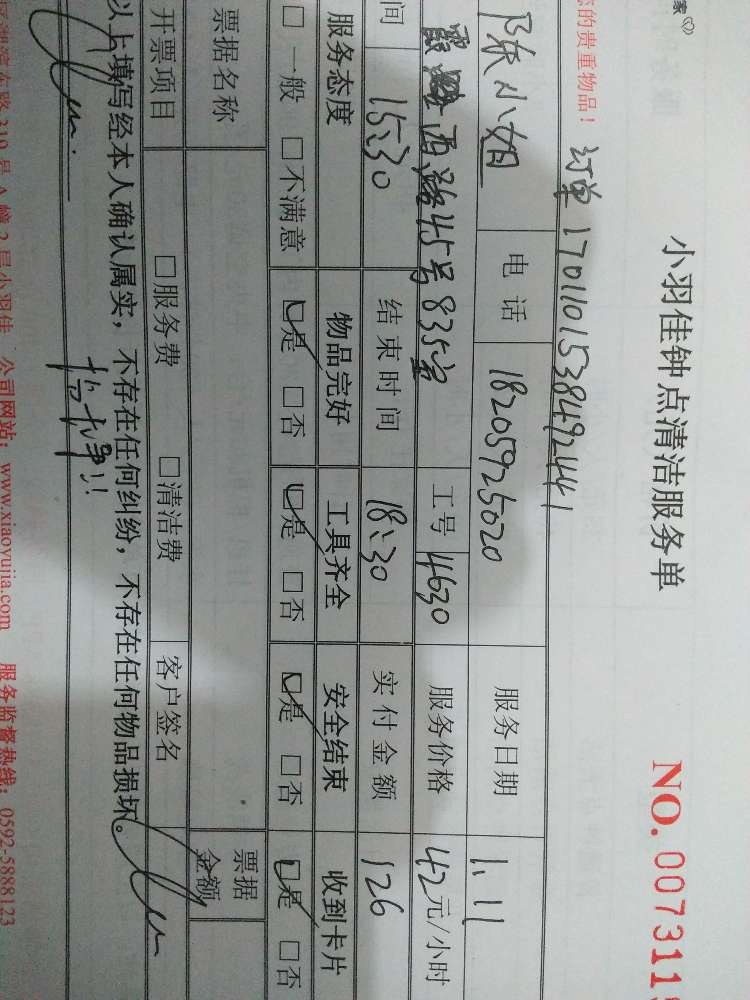 家
小羽佳钟点清洁服务单
NO. 007311
的贵重物品！ 订单 1701101538492441
陈小姐 电话 18205925020 服务日期 1.11
西路45号835室 工号 4630 服务价格 42元/小时
间 15:30 结束时间 18:30 实付金额 126
服务态度 物品完好 工具齐全 安全结束 收到卡片
□一般 □不满意 ☑是 □否 ☑是 □否 ☑是 □否 ☑是 □否
票据名称 票据金额
开票项目 □服务费 □清洁费 客户签名
以上填写经本人确认属实，不存在任何纠纷，不存在任何物品损坏。
路319号A幢2层小羽佳 公司网站：www.xiaoyujia.com 服务监督热线：0592-5888123